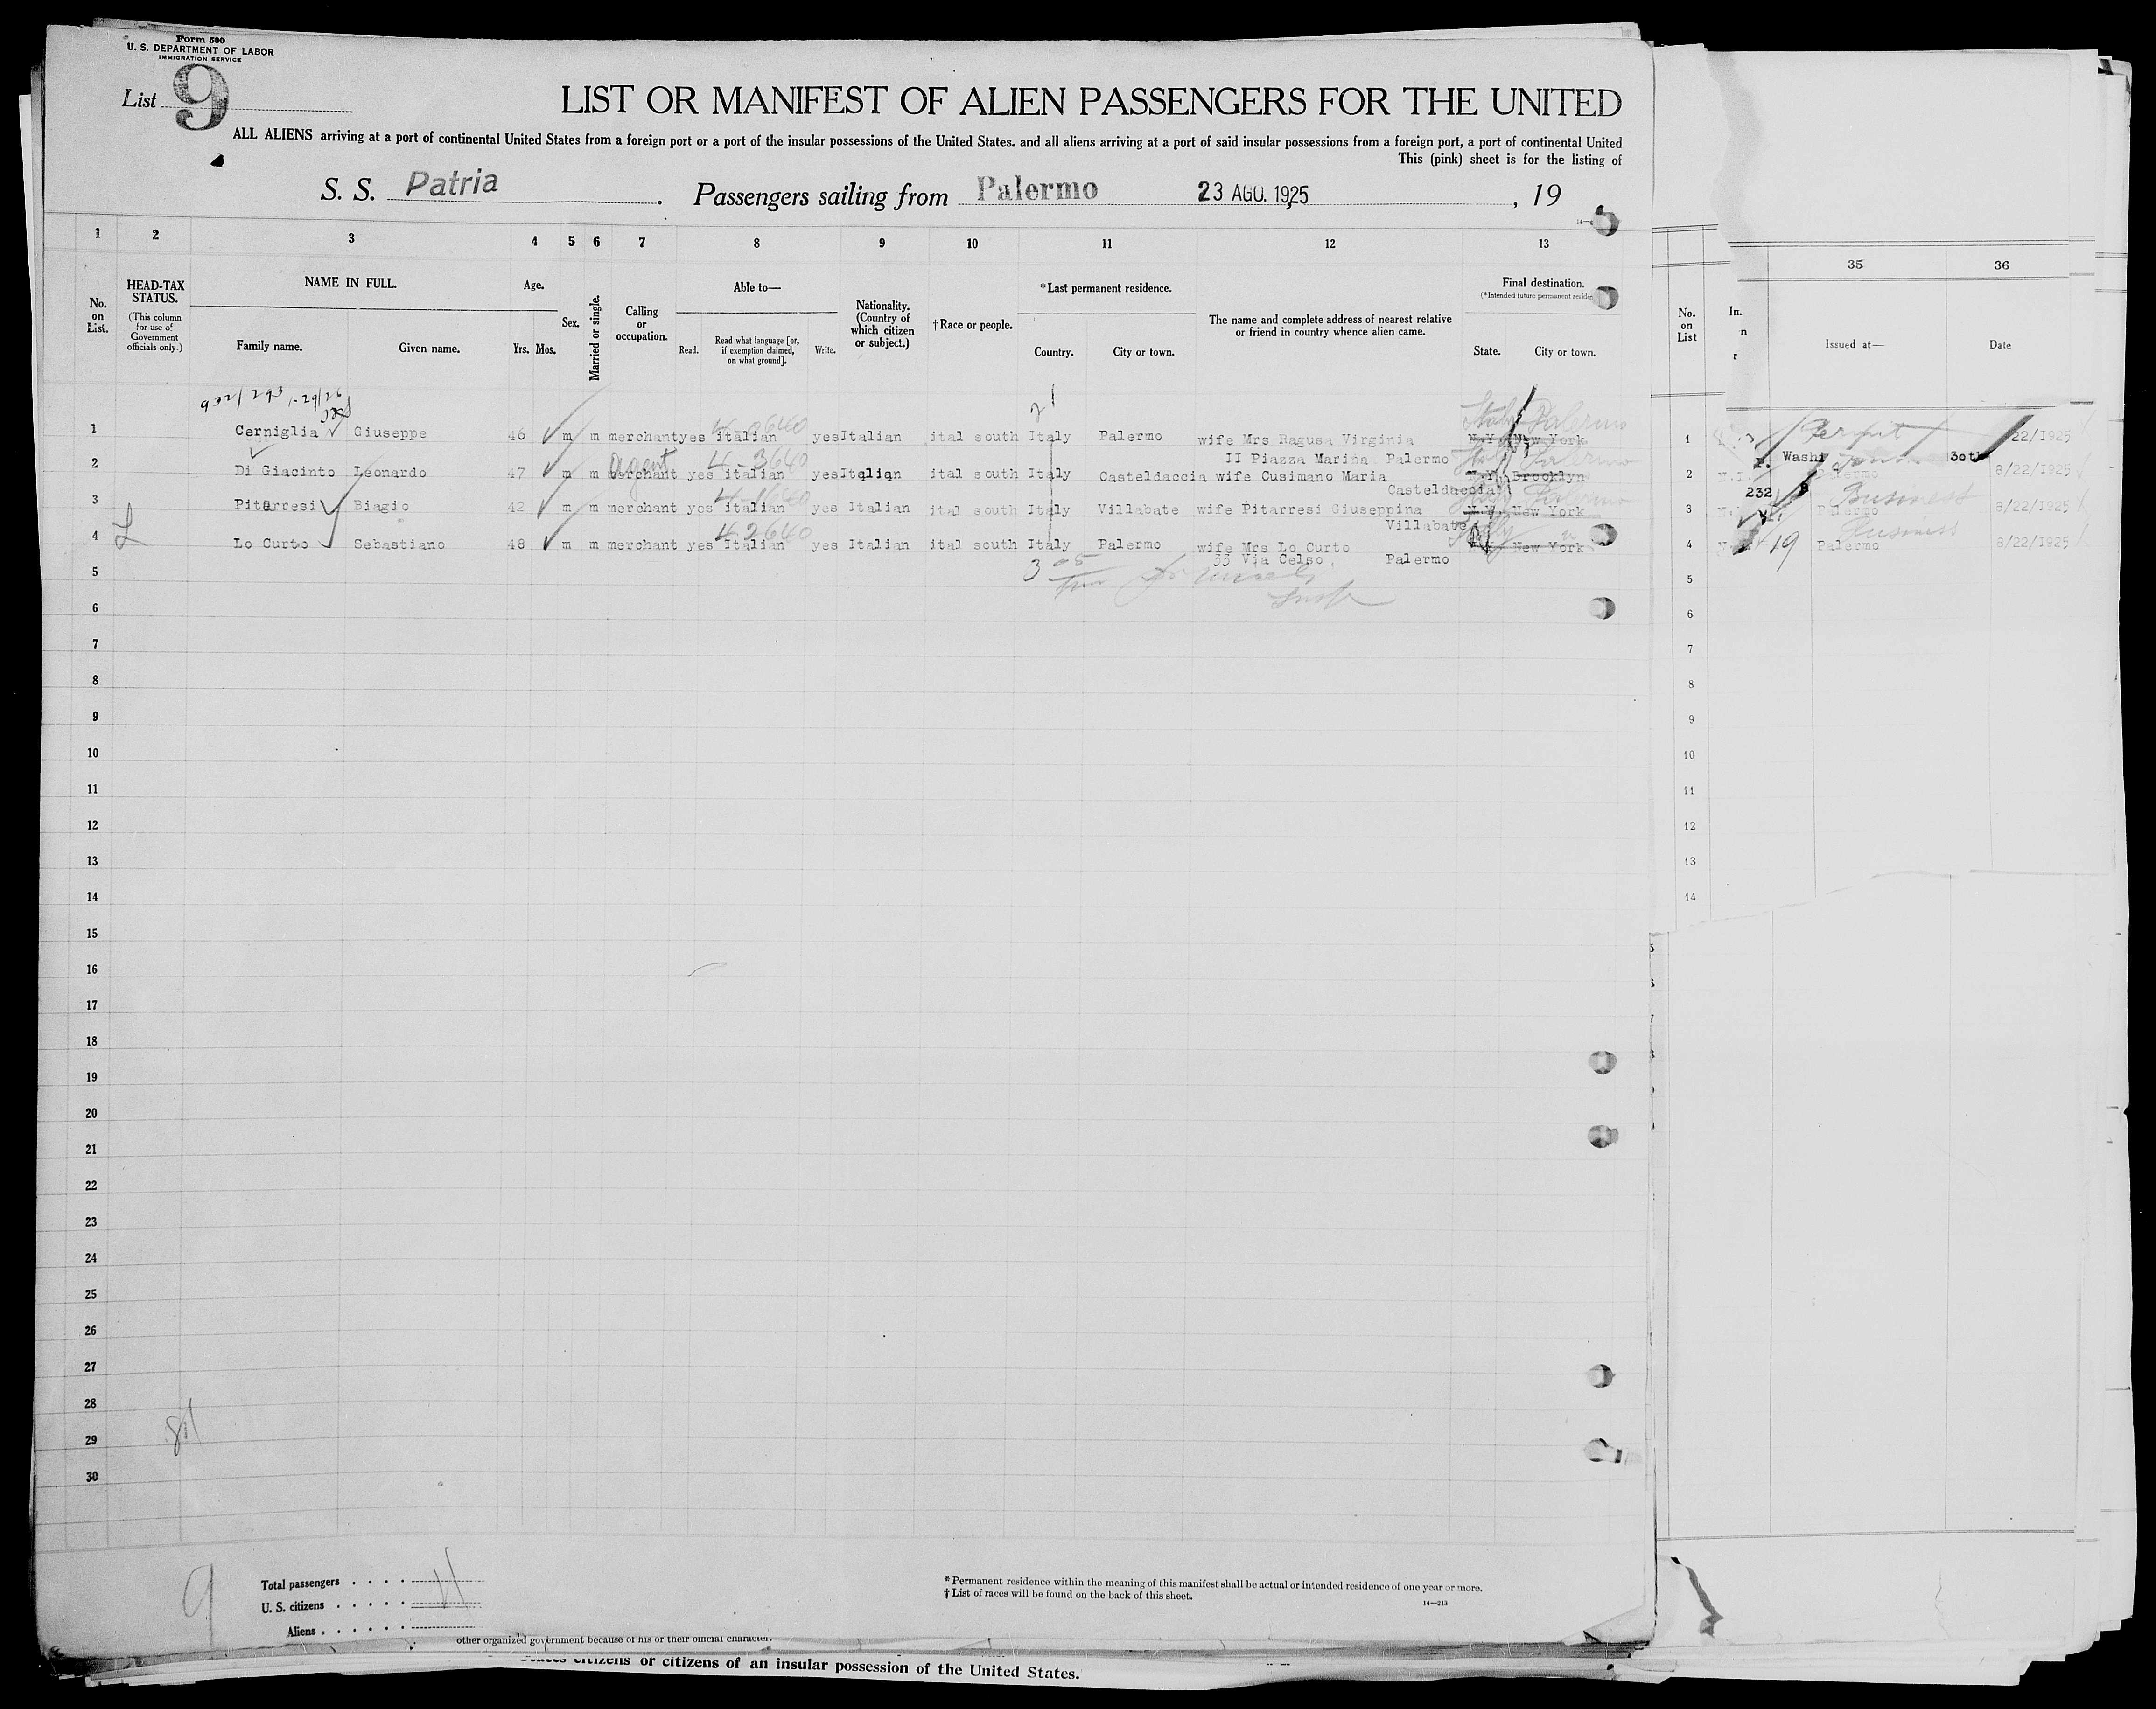 Form 500
U. S. DEPARTMENT OF LABOR
IMMIGRATION SERVICE
List 9
LIST OR MANIFEST OF ALIEN PASSENGERS FOR THE UNITED
ALL ALIENS arriving at a port of continental United States from a foreign port or a port of the insular possessions of the United States. and all aliens arriving at a port of said insular possessions from a foreign port, a port of continental United
This (pink) sheet is for the listing of
S. S. Patria. Passengers sailing from Palermo 23 AGO. 1925, 19
1 2 3 4 5 6 7 8 9 10 11 12 13
No. on List.
HEAD-TAX STATUS.
(This column for use of Government officials only.)
NAME IN FULL.
Family name. Given name.
Age.
Yrs. Mos.
Sex.
Married or single.
Calling or occupation.
Able to—
Read. Read what language [or, if exemption claimed, on what ground]. Write.
Nationality. (Country of which citizen or subject.)
† Race or people.
*Last permanent residence.
Country. City or town.
The name and complete address of nearest relative or friend in country whence alien came.
Final destination.
(*Intended future permanent
State. City or town.
No. on List
35 36
Issued at— Date
1 Cerniglia Giuseppe 46 m m merchant yes italian yes Italian ital south Italy Palermo wife Mrs Ragusa Virginia N.Y. New York
II Piazza Marina Palermo
Italy Palermo
2 Di Giacinto Leonardo 47 m m merchant yes italian yes Italian ital south Italy Casteldaccia wife Cusimano Maria N.Y. Brooklyn
agent 4-3640
Casteldaccia
3 Pitarresi Biagio 42 m m merchant yes italian yes Italian ital south Italy Villabate wife Pitarresi Giuseppina N.Y. New York
Villabate
4 Lo Curto Sebastiano 48 m m merchant yes Italian yes Italian ital south Italy Palermo wife Mrs Lo Curto New York
42640
33 Via Celso, Palermo
1 Permit 22/1925
Wash 30th
2 Palermo 8/22/1925
232 Business
3 Palermo 8/22/1925
Business
4 19 Palermo 8/22/1925
5
6
7
8
9
10
11
12
13
14
15
16
17
18
19
20
21
22
23
24
25
26
27
28
29
30
5
6
7
8
9
10
11
12
13
14
9
Total passengers
U. S. citizens
Aliens
* Permanent residence within the meaning of this manifest shall be actual or intended residence of one year or more.
† List of races will be found on the back of this sheet.
14—213
other organized government because of his or their official character.
citizens or citizens of an insular possession of the United States.